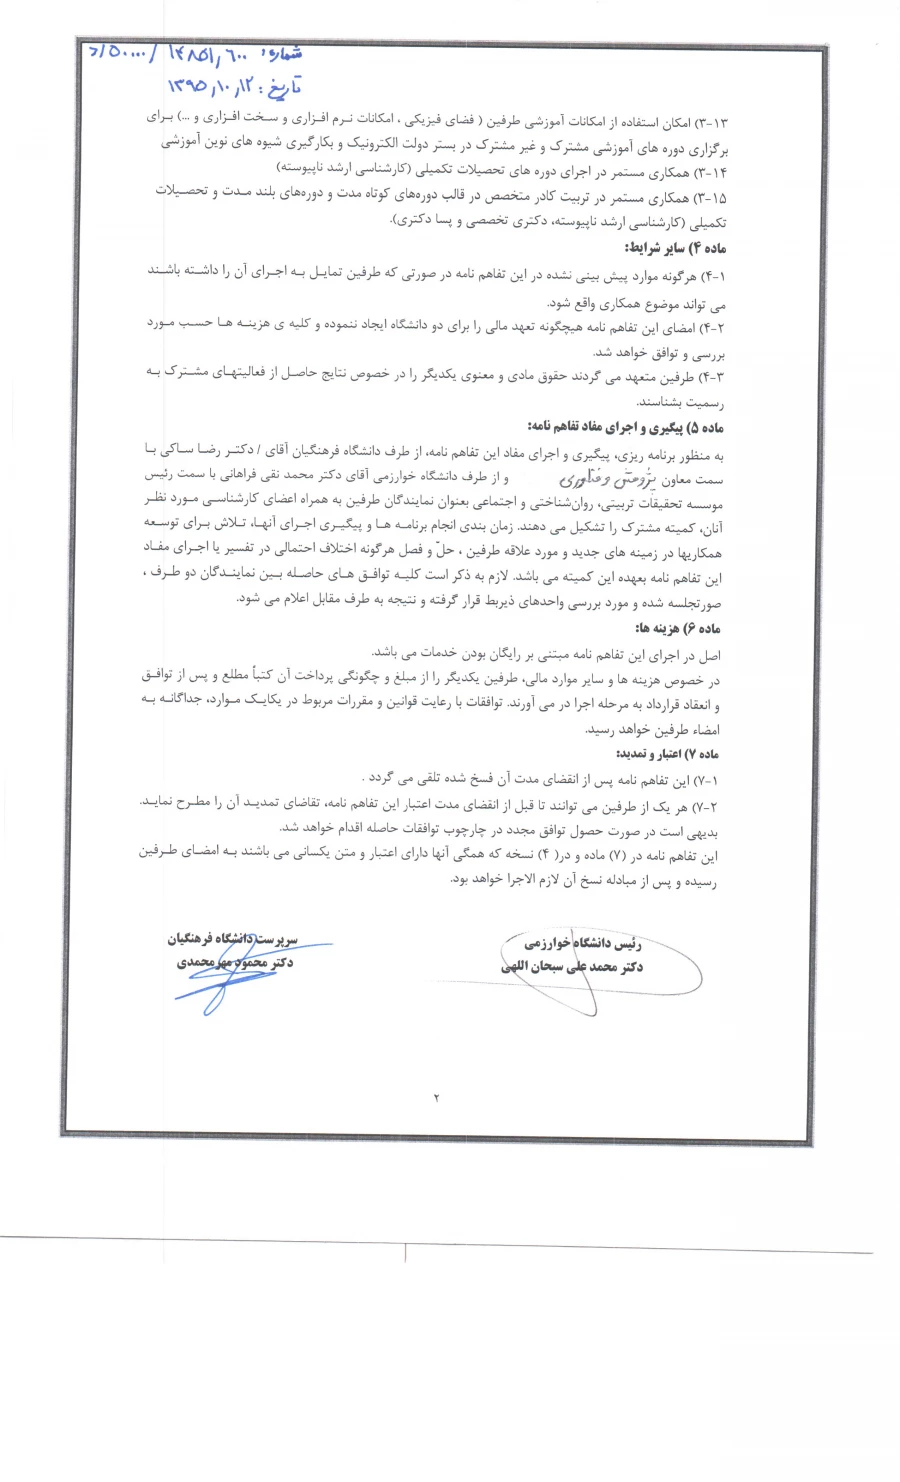 شماره: ۵۰۰۰۰/۱۴۸۵۱/۶۰۰/د
تاریخ: ۱۳۹۵/۱۰/۱۲
۳-۱۳) امکان استفاده از امکانات آموزشی طرفین ( فضای فیزیکی ، امکانات نرم افزاری و سخت افزاری و ...) برای
برگزاری دوره های آموزشی مشترک و غیر مشترک در بستر دولت الکترونیک و بکارگیری شیوه های نوین آموزشی
۳-۱۴) همکاری مستمر در اجرای دوره های تحصیلات تکمیلی (کارشناسی ارشد ناپیوسته)
۳-۱۵) همکاری مستمر در تربیت کادر متخصص در قالب دوره‌های کوتاه مدت و دوره‌های بلند مدت و تحصیلات
تکمیلی (کارشناسی ارشد ناپیوسته، دکتری تخصصی و پسا دکتری).
ماده ۴) سایر شرایط:
۴-۱) هرگونه موارد پیش بینی نشده در این تفاهم نامه در صورتی که طرفین تمایل به اجرای آن را داشته باشند
می تواند موضوع همکاری واقع شود.
۴-۲) امضای این تفاهم نامه هیچگونه تعهد مالی را برای دو دانشگاه ایجاد ننموده و کلیه ی هزینه ها حسب مورد
بررسی و توافق خواهد شد.
۴-۳) طرفین متعهد می گردند حقوق مادی و معنوی یکدیگر را در خصوص نتایج حاصل از فعالیتهای مشترک به
رسمیت بشناسند.
ماده ۵) پیگیری و اجرای مفاد تفاهم نامه:
به منظور برنامه ریزی، پیگیری و اجرای مفاد این تفاهم نامه، از طرف دانشگاه فرهنگیان آقای / دکتر رضا ساکی با
سمت معاون پژوهش و فناوری و از طرف دانشگاه خوارزمی آقای دکتر محمد نقی فراهانی با سمت رئیس
موسسه تحقیقات تربیتی، روان‌شناختی و اجتماعی بعنوان نمایندگان طرفین به همراه اعضای کارشناسی مورد نظر
آنان، کمیته مشترک را تشکیل می دهند. زمان بندی انجام برنامه ها و پیگیری اجرای آنها، تلاش برای توسعه
همکاریها در زمینه های جدید و مورد علاقه طرفین ، حلّ و فصل هرگونه اختلاف احتمالی در تفسیر یا اجرای مفاد
این تفاهم نامه بعهده این کمیته می باشد. لازم به ذکر است کلیه توافق های حاصله بین نمایندگان دو طرف ،
صورتجلسه شده و مورد بررسی واحدهای ذیربط قرار گرفته و نتیجه به طرف مقابل اعلام می شود.
ماده ۶) هزینه ها:
اصل در اجرای این تفاهم نامه مبتنی بر رایگان بودن خدمات می باشد.
در خصوص هزینه ها و سایر موارد مالی، طرفین یکدیگر را از مبلغ و چگونگی پرداخت آن کتباً مطلع و پس از توافق
و انعقاد قرارداد به مرحله اجرا در می آورند. توافقات با رعایت قوانین و مقررات مربوط در یکایک موارد، جداگانه به
امضاء طرفین خواهد رسید.
ماده ۷) اعتبار و تمدید:
۷-۱) این تفاهم نامه پس از انقضای مدت آن فسخ شده تلقی می گردد .
۷-۲) هر یک از طرفین می توانند تا قبل از انقضای مدت اعتبار این تفاهم نامه، تقاضای تمدید آن را مطرح نماید.
بدیهی است در صورت حصول توافق مجدد در چارچوب توافقات حاصله اقدام خواهد شد.
این تفاهم نامه در (۷) ماده و در( ۴) نسخه که همگی آنها دارای اعتبار و متن یکسانی می باشند به امضای طرفین
رسیده و پس از مبادله نسخ آن لازم الاجرا خواهد بود.
رئیس دانشگاه خوارزمی
دکتر محمد علی سبحان اللهی
سرپرست دانشگاه فرهنگیان
دکتر محمود مهرمحمدی
۲